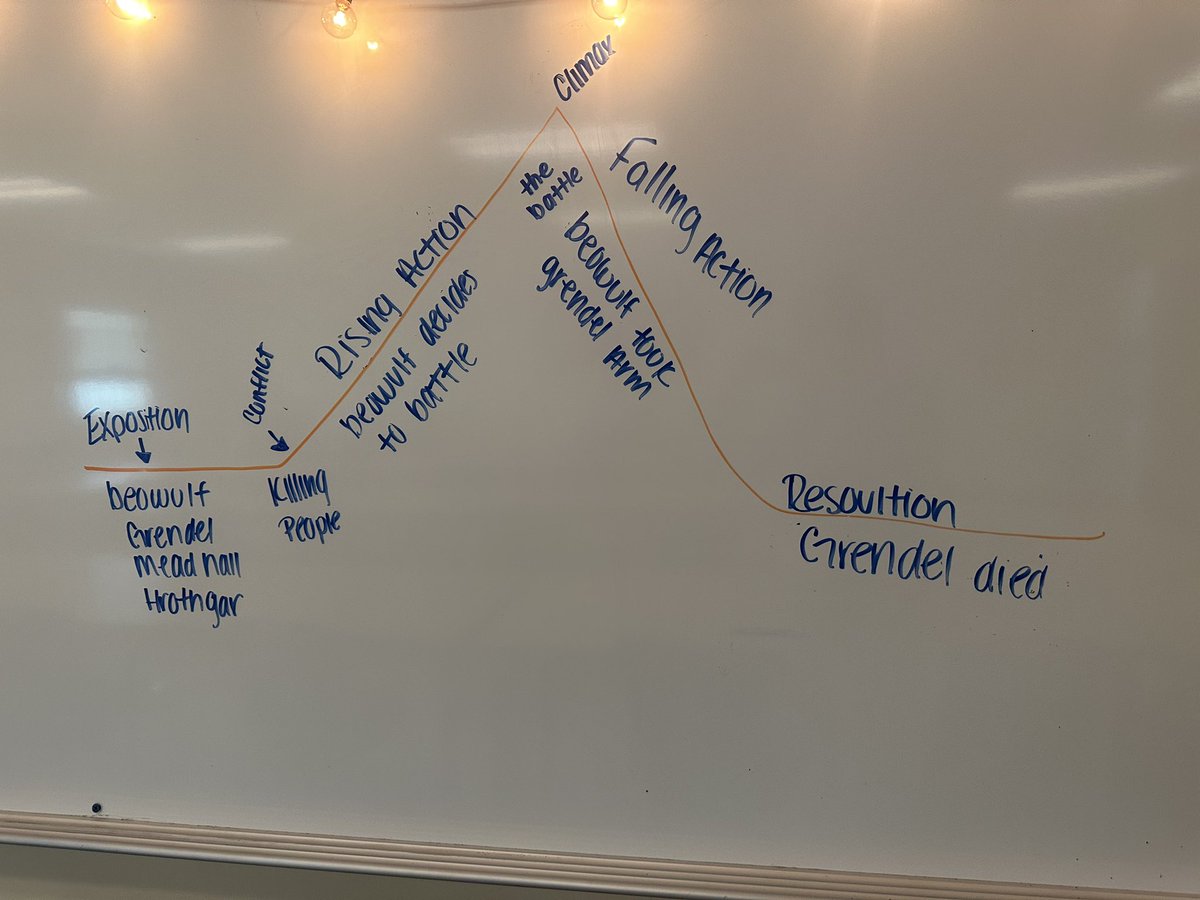 Climax
the
battle
Falling Action
Rising Action
beowulf decides
to battle
beowulf took
grendel Arm
Conflict
Killing
People
Exposition
beowulf
Grendel
mead hall
Hrothgar
Resoultion
Grendel died